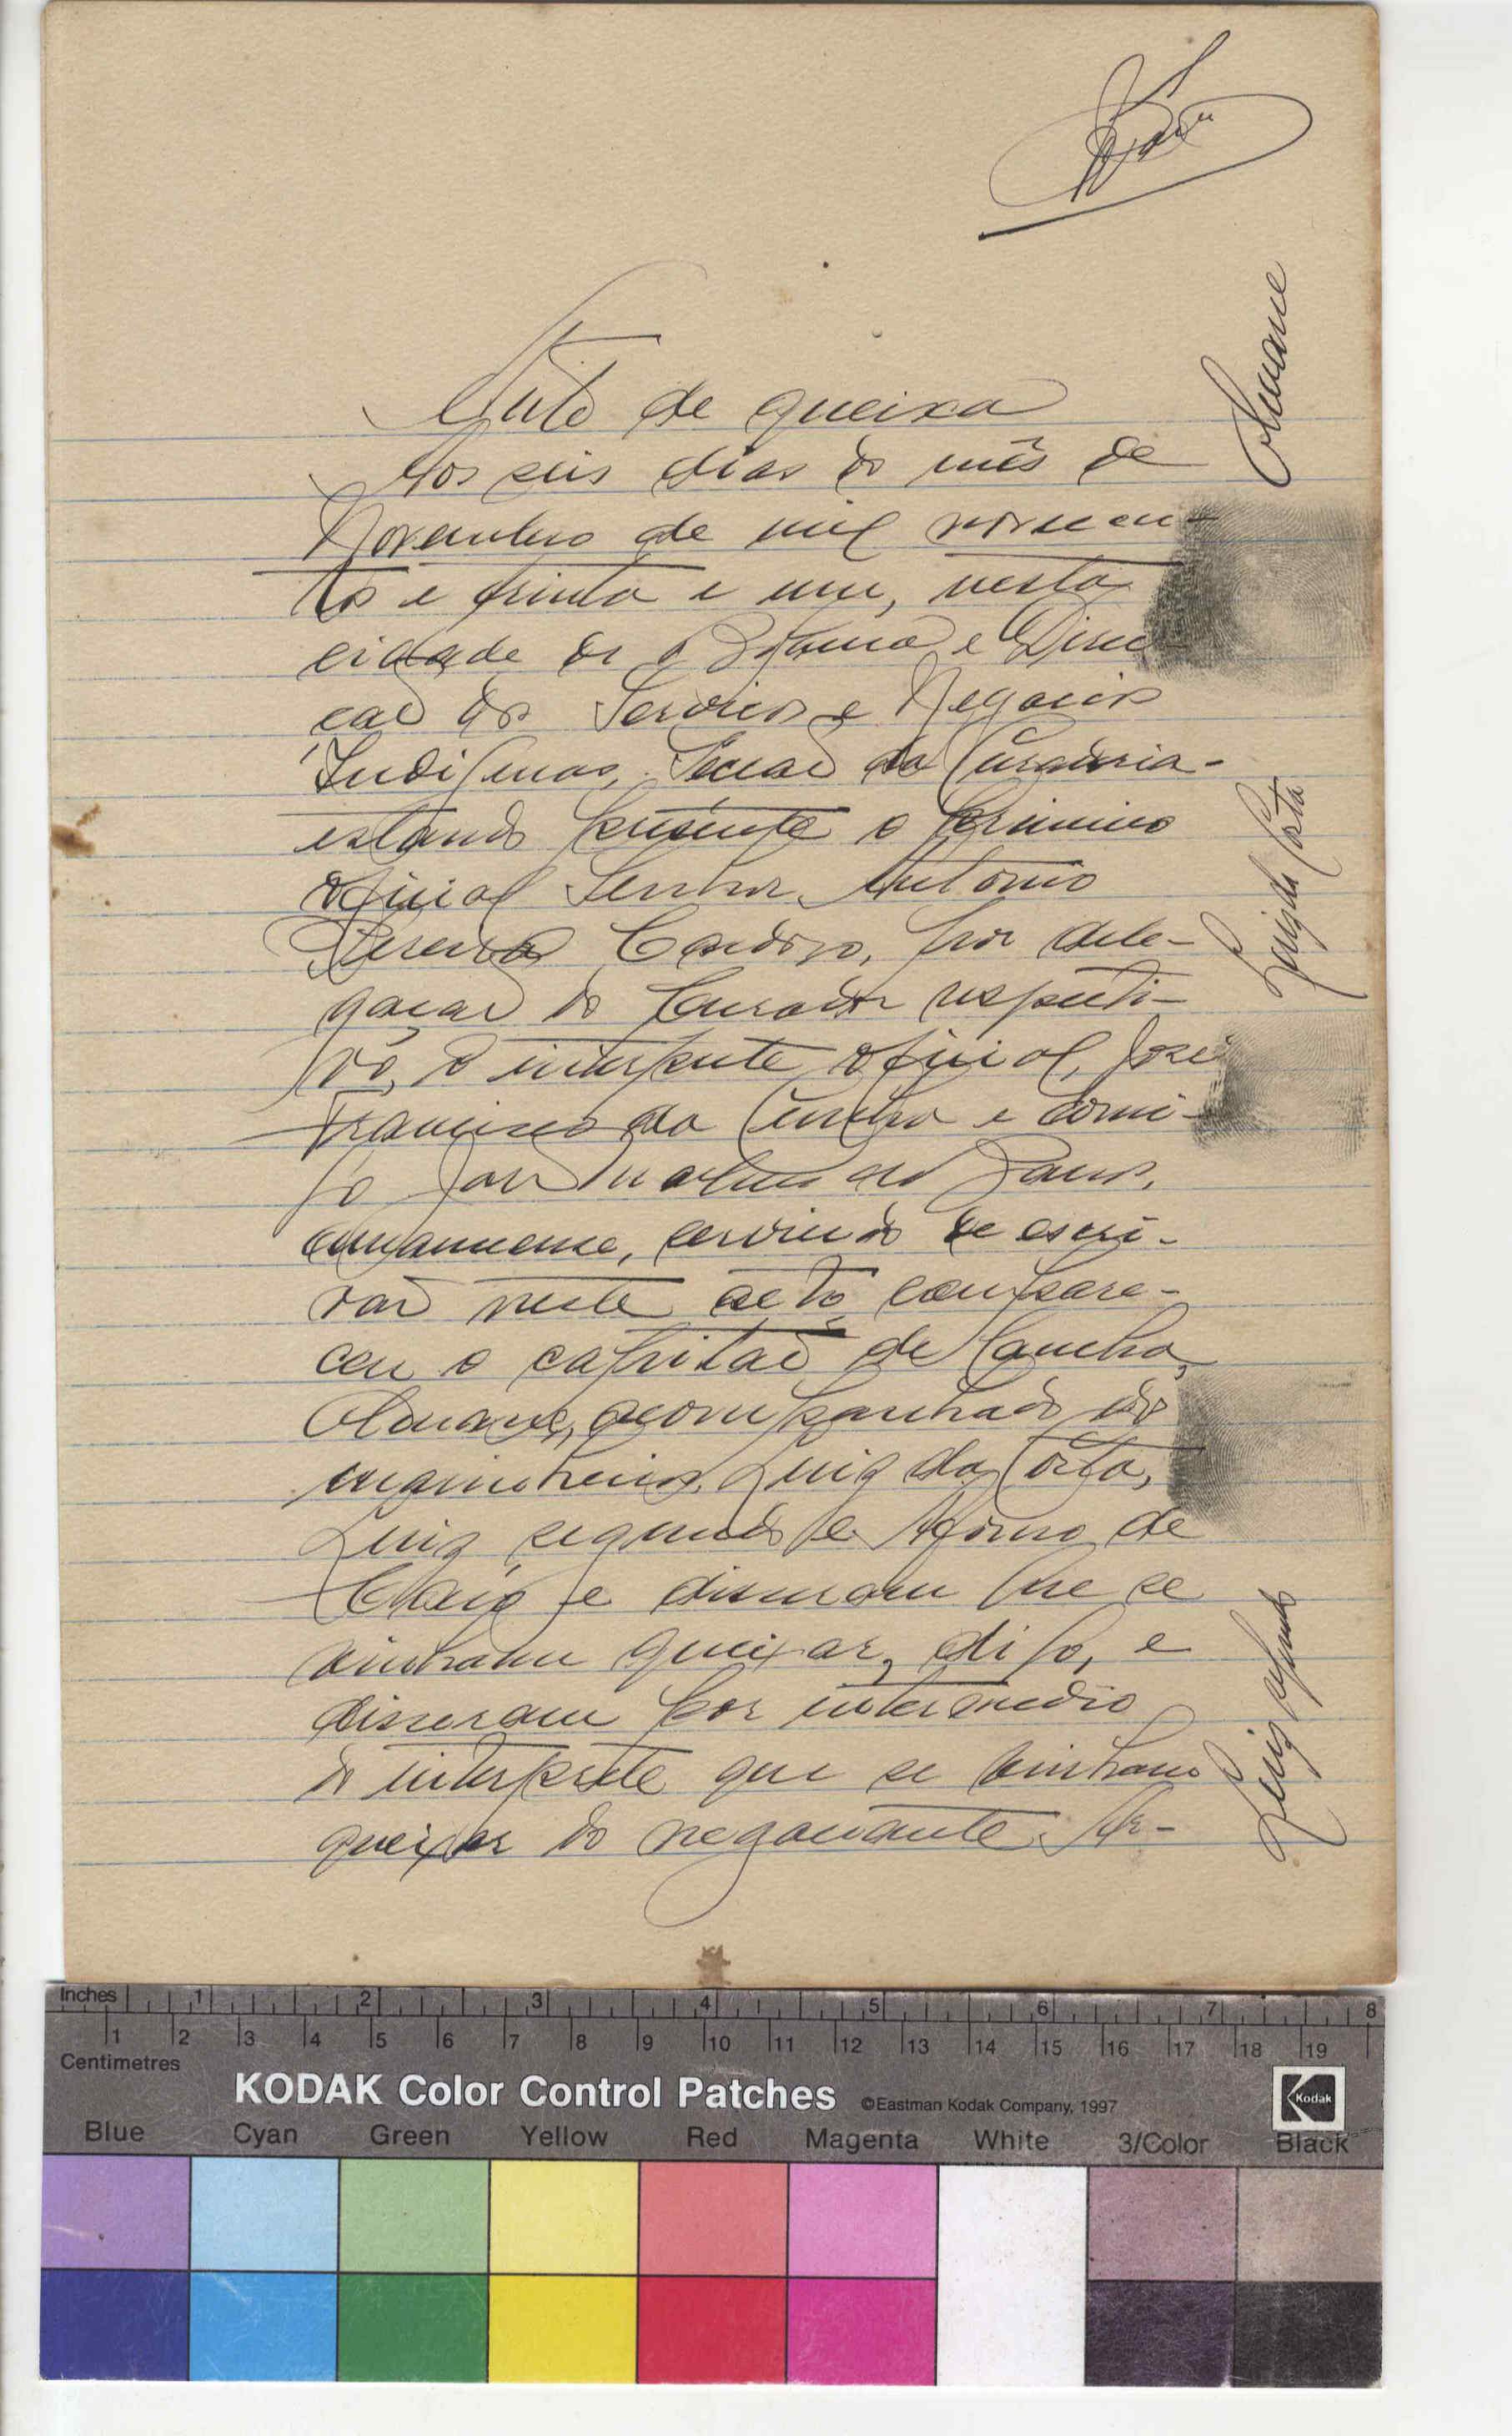 Auto de queixa
Aos seis dias do mês de
Novembro de mil novecen-
tos e trinta e um, nesta
cidade de Bolama e Direc
ção dos Serviços e Negocios
Indigenas, Secção da Curadoria-
estando presente o primeiro
oficial Senhor Antonio
Pereira Cardoso, por dele-
gação do Curador respecti-
vo, o interprete oficial, José
Francisco da Cunha e comi-
go
amanuense, servindo de escri-
vão neste acto compare-
ceu o capitão de Canha
acompanhado dos
Luiz da Costa,
Luiz segundo e Afonso de
e disseram que se
vinham queixar, digo, e
disseram por intermedio
do interprete que se vinham
queixar do negociante Ar-
Luiz da Costa
Luiz segundo
Inches 1 2 3 4 5 6 7 8
Centimetres 1 2 3 4 5 6 7 8 9 10 11 12 13 14 15 16 17 18 19
KODAK Color Control Patches ©Eastman Kodak Company, 1997
Kodak
Blue Cyan Green Yellow Red Magenta White 3/Color Black